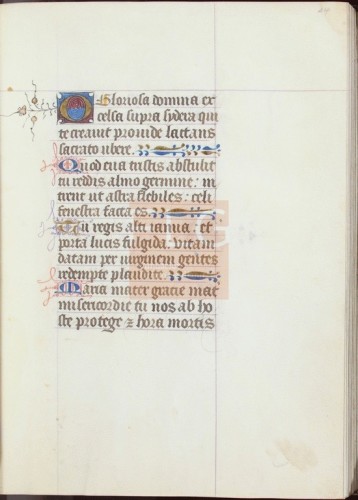 O Gloriosa domina ex
celsa supra sydera qui
te creauit prouide lactans
sacrato ubere.
Quod eua tristis abstulit
tu reddis almo germine: in
trent ut astra flebiles: celi
fenestra facta es.
Tu regis alti ianua: et
porta lucis fulgida: vitam
datam per uirginem gentes
redempte plaudite.
Maria mater gracie mat
misericordie tu nos ab ho
ste protege z hora mortis